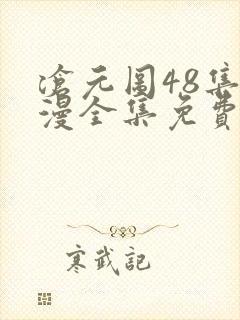 滄元图48集
漫全集免費
寒武記